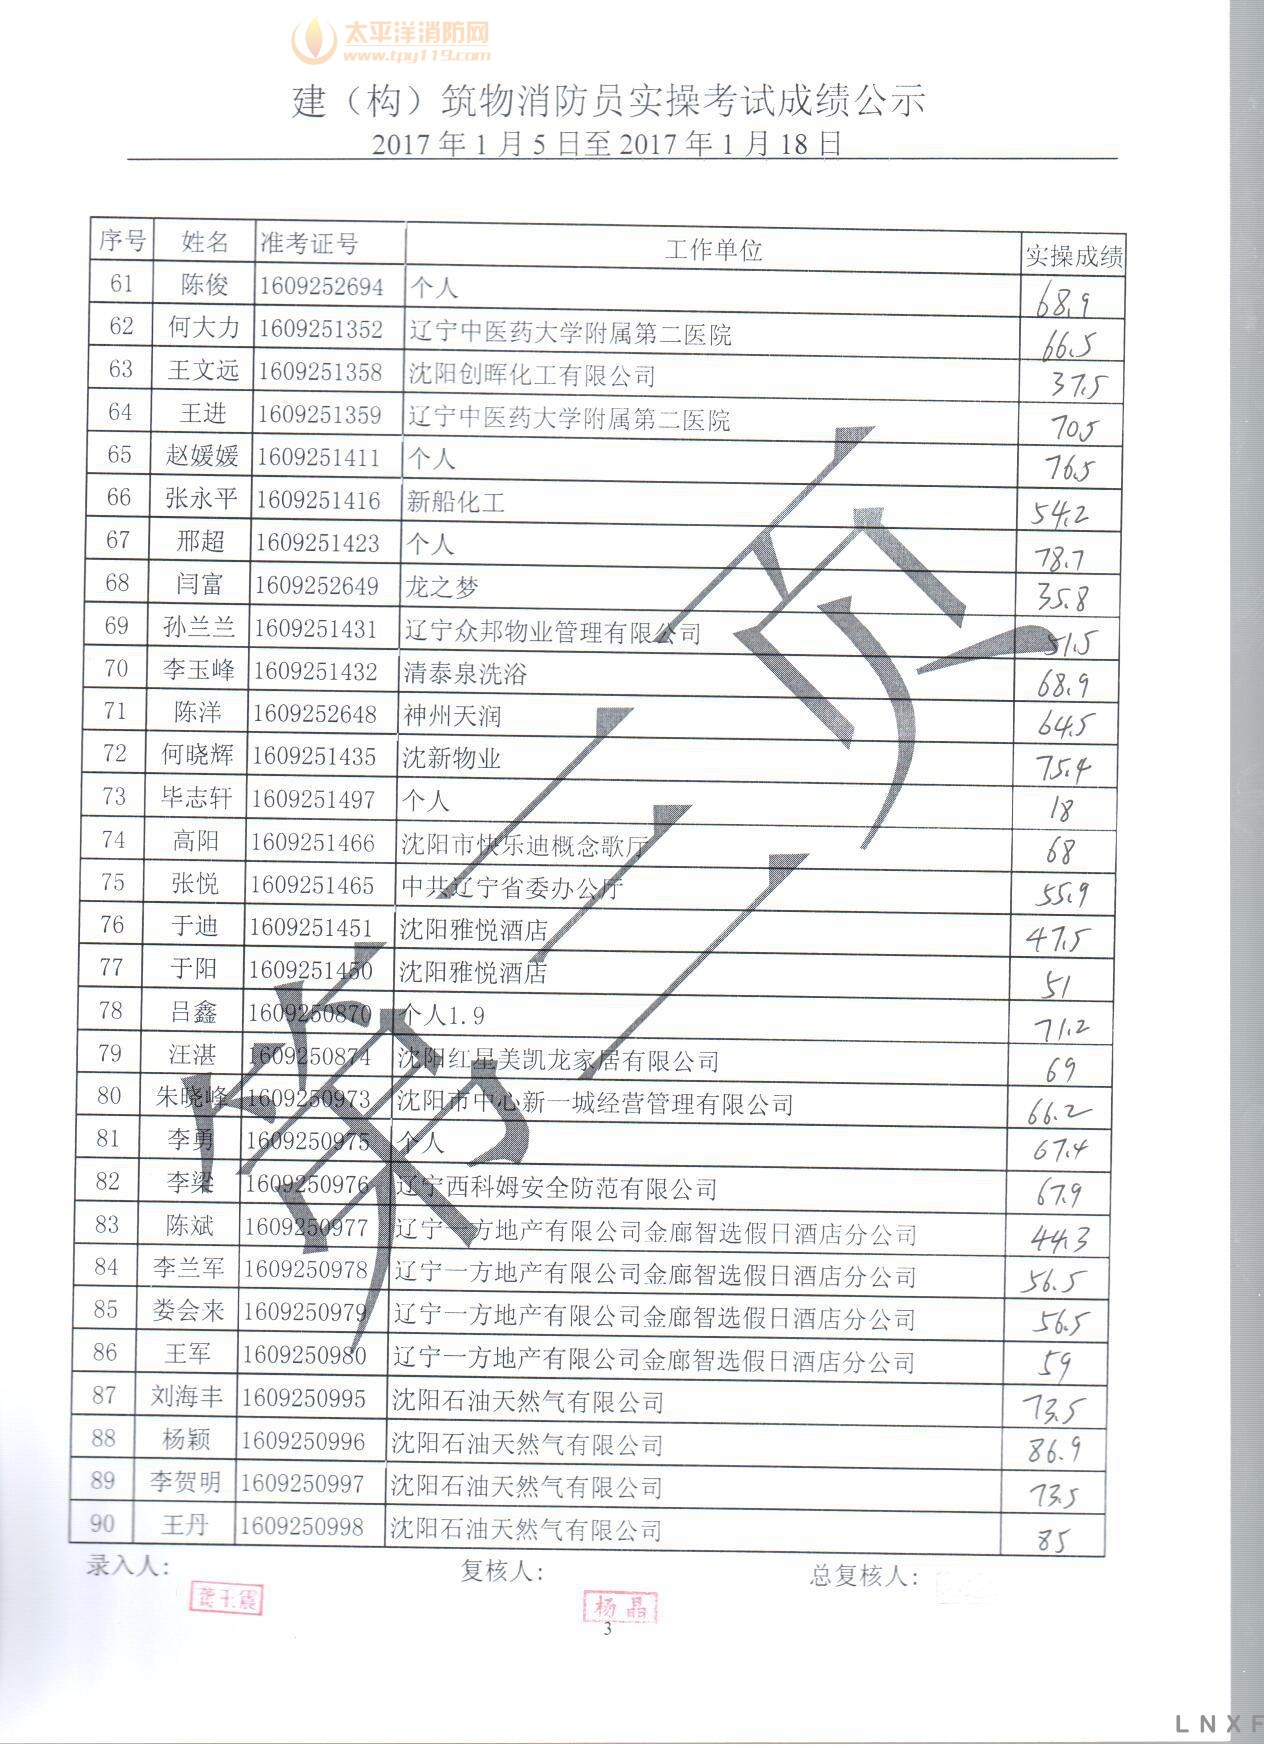 太平洋消防网
www.tpy119.com
建（构）筑物消防员实操考试成绩公示
2017 年 1 月 5 日至 2017 年 1 月 18 日
序号 姓名 准考证号 工作单位 实操成绩
61 陈俊 1609252694 个人 68.9
62 何大力 1609251352 辽宁中医药大学附属第二医院 66.5
63 王文远 1609251358 沈阳创晖化工有限公司 37.5
64 王进 1609251359 辽宁中医药大学附属第二医院 70.5
65 赵媛媛 1609251411 个人 76.5
66 张永平 1609251416 新船化工 54.2
67 邢超 1609251423 个人 78.7
68 闫富 1609252649 龙之梦 35.8
69 孙兰兰 1609251431 辽宁众邦物业管理有限公司 51.5
70 李玉峰 1609251432 清泰泉洗浴 68.9
71 陈洋 1609252648 神州天润 64.5
72 何晓辉 1609251435 沈新物业 75.4
73 毕志轩 1609251497 个人 18
74 高阳 1609251466 沈阳市快乐迪概念歌厅 68
75 张悦 1609251465 中共辽宁省委办公厅 55.9
76 于迪 1609251451 沈阳雅悦酒店 47.5
77 于阳 1609251450 沈阳雅悦酒店 51
78 吕鑫 1609250870 个人1.9 71.2
79 汪湛 1609250874 沈阳红星美凯龙家居有限公司 69
80 朱晓峰 1609250973 沈阳市中心新一城经营管理有限公司 66.2
81 李勇 1609250975 个人 67.4
82 李梁 1609250976 辽宁西科姆安全防范有限公司 67.9
83 陈斌 1609250977 辽宁一方地产有限公司金廊智选假日酒店分公司 44.3
84 李兰军 1609250978 辽宁一方地产有限公司金廊智选假日酒店分公司 56.5
85 娄会来 1609250979 辽宁一方地产有限公司金廊智选假日酒店分公司 56.5
86 王军 1609250980 辽宁一方地产有限公司金廊智选假日酒店分公司 59
87 刘海丰 1609250995 沈阳石油天然气有限公司 73.5
88 杨颖 1609250996 沈阳石油天然气有限公司 86.9
89 李贺明 1609250997 沈阳石油天然气有限公司 73.5
90 王丹 1609250998 沈阳石油天然气有限公司 85
第三页
录入人： 复核人： 总复核人：
杨晶
3
LNXF